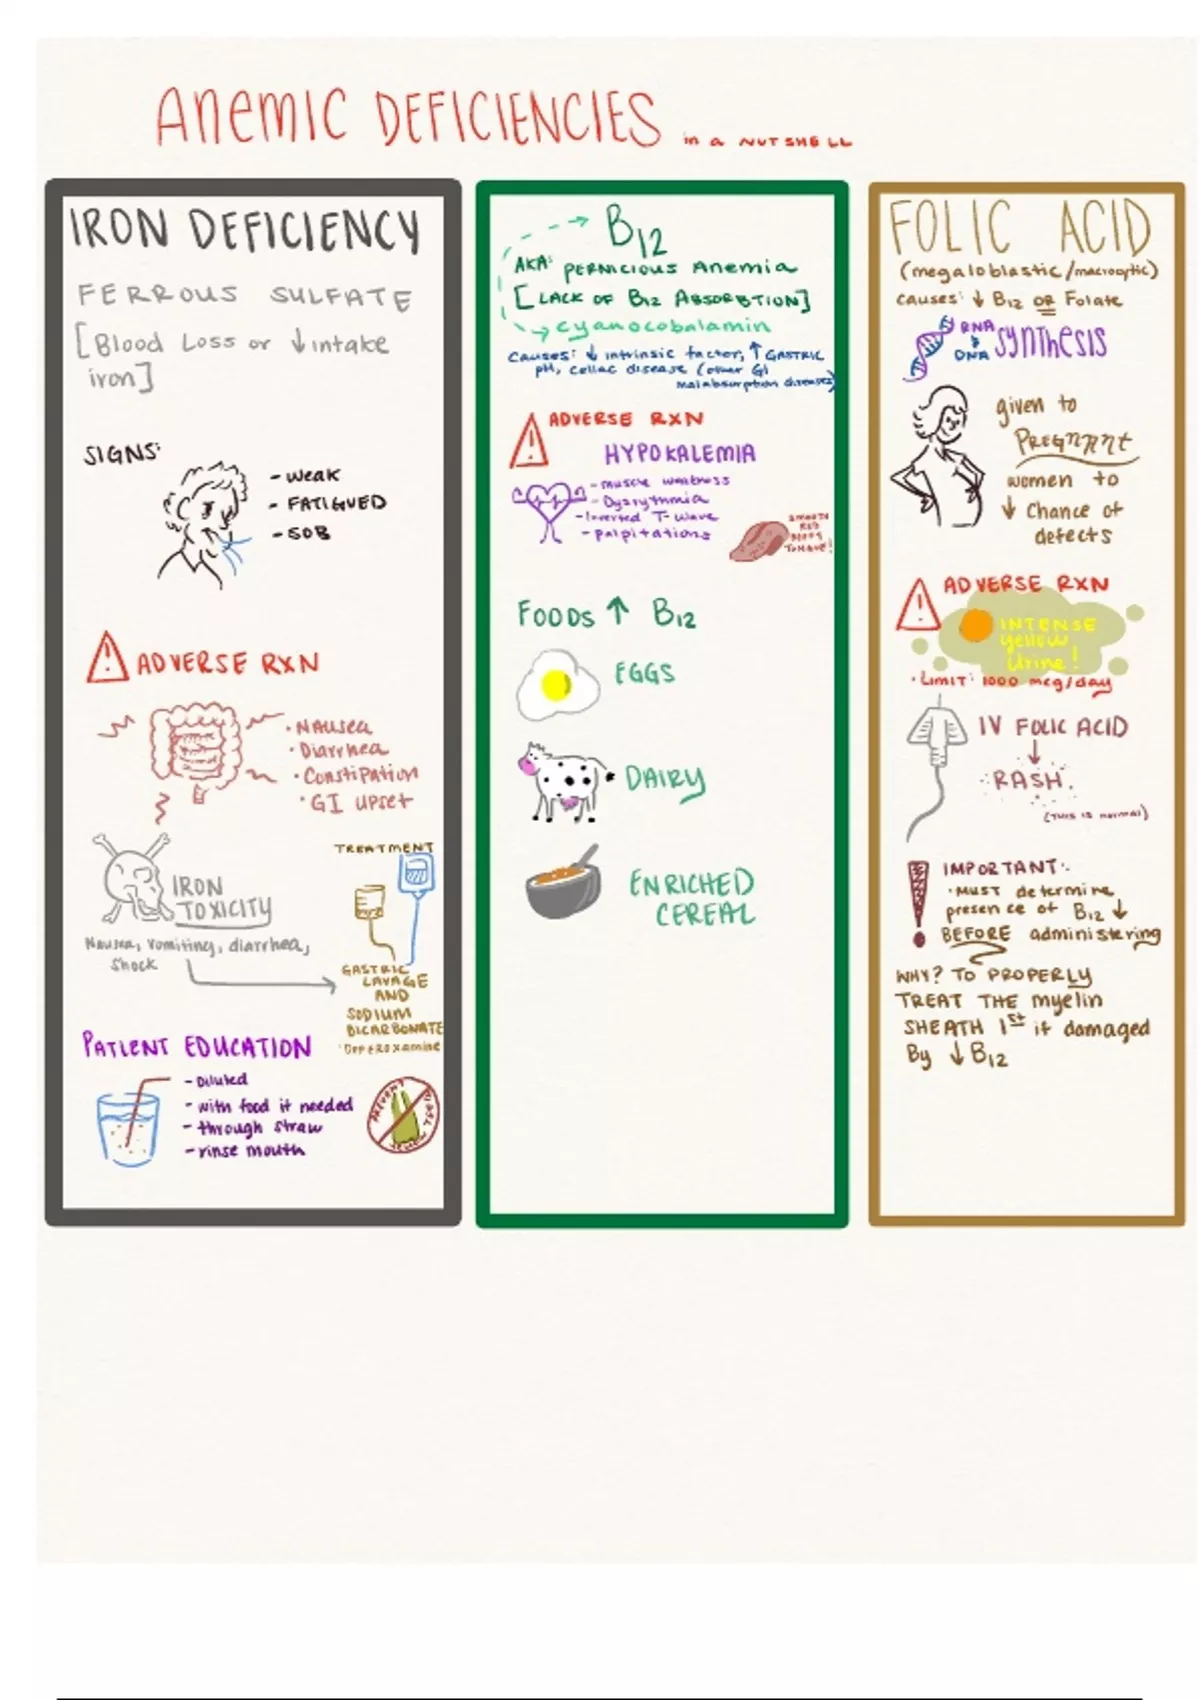 ANEMIC DEFICIENCIES in a NUTSHELL
IRON DEFICIENCY
FERROUS SULFATE
[Blood Loss or ↓ intake
iron]
SIGNS:
- Weak
- FATIGUED
- SOB
ADVERSE RXN
• Nausea
• Diarrhea
• Constipation
• GI upset
IRON
TOXICITY
Nausea, vomiting, diarrhea,
shock
TREATMENT
GASTRIC
LAVAGE
AND
SODIUM
BICARBONATE
• Deferoxamine
PATIENT EDUCATION
- Diluted
- with food if needed
- through straw
- rinse mouth
PREVENT
B12
AKA: PERNICIOUS Anemia
[LACK OF B12 ABSORBTION]
cyanocobalamin
causes: ↓ intrinsic factor, ↑ GASTRIC
pH, celiac disease (other GI
malabsorption diseases)
ADVERSE RXN
HYPOKALEMIA
- muscle weakness
- Dysrythmia
- Inverted T-Wave
- palpitations
SMOOTH
RED
BEEFY
TONGUE!
FOODS ↑ B12
EGGS
DAIRY
ENRICHED
CEREAL
FOLIC ACID
(megaloblastic/macrocytic)
causes: ↓ B12 OR Folate
RNA
& DNA SYNTHESIS
given to
PREGNANT
women to
↓ Chance of
defects
ADVERSE RXN
INTENSE
yellow
Urine!
• LIMIT: 1000 mcg/day
IV FOLIC ACID
↓
RASH.
(THIS IS normal)
IMPORTANT:
• MUST determine
presence of B12 ↓
BEFORE administering
WHY? TO PROPERLY
TREAT THE myelin
SHEATH 1st if damaged
By ↓ B12